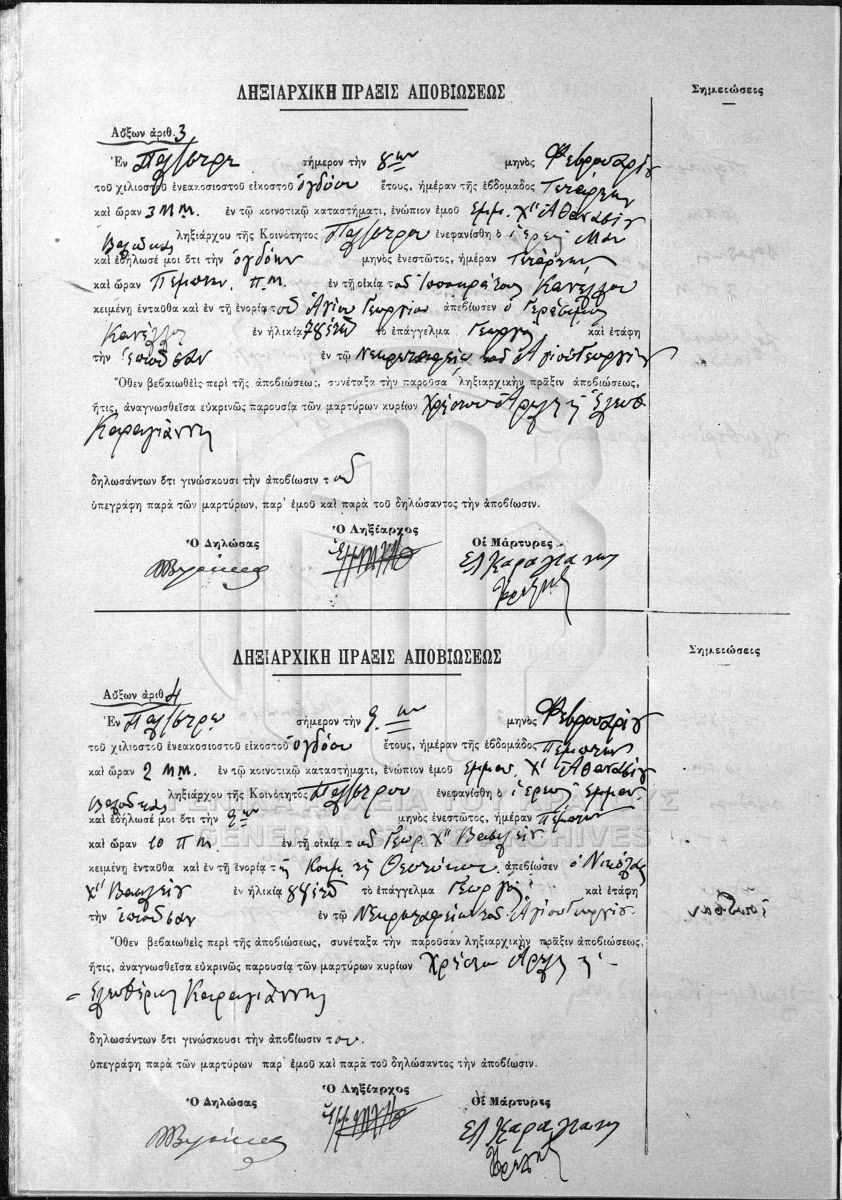 ΛΗΞΙΑΡΧΙΚΗ ΠΡΑΞΙΣ ΑΠΟΒΙΩΣΕΩΣ
Σημειώσεις
Αὔξων ἀριθ. 3
Ἐν σήμερον τὴν 8ην μηνὸς Φεβρουαρίου
τοῦ χιλιοστοῦ ἐνεακοσιοστοῦ εἰκοστοῦ ὀγδόου ἔτους, ἡμέραν τῆς ἑβδομάδος Τετάρτην
καὶ ὥραν 3 Μ.Μ. ἐν τῷ κοινοτικῷ καταστήματι, ἐνώπιον ἐμοῦ Εμμ. Χ" Ἀθανασίου
ληξιάρχου τῆς Κοινότητος ἐνεφανίσθη ὁ ἱερεὺς
καὶ ἐδήλωσέ μοι ὅτι τὴν ὀγδόην μηνὸς ἐνεστῶτος, ἡμέραν Τετάρτην
καὶ ὥραν Πέμπτην π.μ. ἐν τῇ οἰκίᾳ τοῦ Ἱπποκράτους Κανέλλου
κειμένῃ ἐνταῦθα καὶ ἐν τῇ ἐνορίᾳ τοῦ Ἁγίου Γεωργίου ἀπεβίωσεν ὁ Γεράσιμος
Κανέλλος ἐν ἡλικίᾳ 78 ἐτῶν τὸ ἐπάγγελμα Γεωργὸς καὶ ἐτάφη
τὴν ἐπιοῦσαν ἐν τῷ Νεκροταφείῳ τοῦ Ἁγίου Γεωργίου
Ὅθεν βεβαιωθεὶς περὶ τῆς ἀποβιώσεως, συνέταξα τὴν παροῦσα ληξιαρχικὴν πρᾶξιν ἀποβιώσεως,
ἥτις, ἀναγνωσθεῖσα εὐκρινῶς παρουσίᾳ τῶν μαρτύρων κυρίων Χρήστου Ἐλευθ.
Καραγιάννη
δηλωσάντων ὅτι γινώσκουσι τὴν ἀποβίωσιν τοῦ
ὑπεγράφη παρὰ τῶν μαρτύρων, παρ' ἐμοῦ καὶ παρὰ τοῦ δηλώσαντος τὴν ἀποβίωσιν.
Ὁ Δηλώσας Ὁ Ληξίαρχος Οἱ Μάρτυρες
Ελ Καραγιαννη
ΛΗΞΙΑΡΧΙΚΗ ΠΡΑΞΙΣ ΑΠΟΒΙΩΣΕΩΣ
Σημειώσεις
Αὔξων ἀριθ. 4
Ἐν σήμερον τὴν 9.ην μηνὸς Φεβρουαρίου
τοῦ χιλιοστοῦ ἐνεακοσιοστοῦ εἰκοστοῦ ὀγδόου ἔτους, ἡμέραν τῆς ἑβδομάδος Πέμπτην
καὶ ὥραν 2 Μ.Μ. ἐν τῷ κοινοτικῷ καταστήματι, ἐνώπιον ἐμοῦ Εμμαν. Χ" Ἀθανασίου
ληξιάρχου τῆς Κοινότητος ἐνεφανίσθη ὁ ἱερεὺς Εμμαν.
καὶ ἐδήλωσέ μοι ὅτι τὴν 9ην μηνὸς ἐνεστῶτος, ἡμέραν Πέμπτην
καὶ ὥραν 10 π.μ. ἐν τῇ οἰκίᾳ τοῦ Γεωρ. Χ" Βασιλείου
κειμένῃ ἐνταῦθα καὶ ἐν τῇ ἐνορίᾳ τῆς Κοιμ. τῆς Θεοτόκου ἀπεβίωσεν ὁ Νικόλαος
Χ" Βασιλείου ἐν ἡλικίᾳ ἐτῶν τὸ ἐπάγγελμα Γεωργὸς καὶ ἐτάφη
τὴν ἐπιοῦσαν ἐν τῷ Νεκροταφείῳ τοῦ Ἁγίου Γεωργίου
Ὅθεν βεβαιωθεὶς περὶ τῆς ἀποβιώσεως, συνέταξα τὴν παροῦσαν ληξιαρχικὴν πρᾶξιν ἀποβιώσεως,
ἥτις, ἀναγνωσθεῖσα εὐκρινῶς παρουσίᾳ τῶν μαρτύρων κυρίων Χρήστου
Ἐλευθέριος Καραγιάννης
δηλωσάντων ὅτι γινώσκουσι τὴν ἀποβίωσιν του.
ὑπεγράφη παρὰ τῶν μαρτύρων παρ' ἐμοῦ καὶ παρὰ τοῦ δηλώσαντος τὴν ἀποβίωσιν.
Ὁ Δηλώσας Ὁ Ληξίαρχος Οἱ Μάρτυρες
Ελ Καραγιαννη
ΓΕΝΙΚΑ ΑΡΧΕΙΑ ΤΟΥ ΚΡΑΤΟΥΣ
GENERAL STATE ARCHIVES